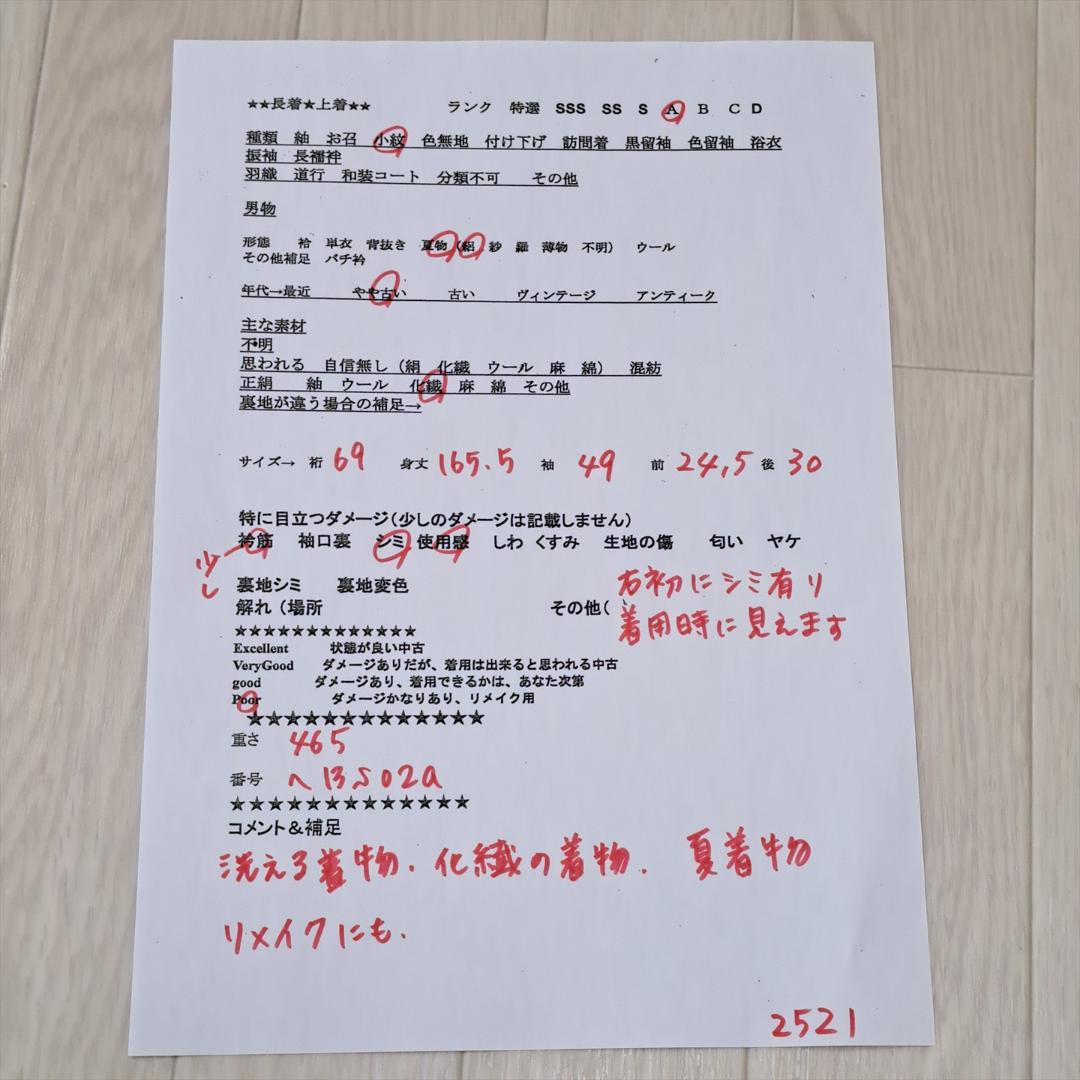 ★★長着★上着★★ ランク 特選 SSS SS S A B C D
種類 紬 お召 小紋 色無地 付け下げ 訪問着 黒留袖 色留袖 浴衣
振袖 長襦袢
羽織 道行 和装コート 分類不可 その他
男物
形態 袷 単衣 背抜き 夏物 (絽 紗 羅 薄物 不明) ウール
その他補足 バチ衿
年代→最近 やや古い 古い ヴィンテージ アンティーク
主な素材
不明
思われる 自信無し (絹 化繊 ウール 麻 綿) 混紡
正絹 紬 ウール 化繊 麻 綿 その他
裏地が違う場合の補足→
サイズ→ 裄 69 身丈 165.5 袖 49 前 24,5 後 30
特に目立つダメージ(少しのダメージは記載しません)
衿筋 袖口裏 シミ 使用感 しわ くすみ 生地の傷 匂い ヤケ
少し
裏地シミ 裏地変色
解れ (場所 その他(
右衽にシミ有り
着用時に見えます
★★★★★★★★★★★★★
Excellent 状態が良い中古
VeryGood ダメージありだが、着用は出来ると思われる中古
good ダメージあり、着用できるかは、あなた次第
Poor ダメージかなりあり、リメイク用
★★★★★★★★★★★★★
重さ 465
番号 へ13502a
★★★★★★★★★★★★★
コメント&補足
洗える着物. 化繊の着物. 夏着物
リメイクにも.
2521